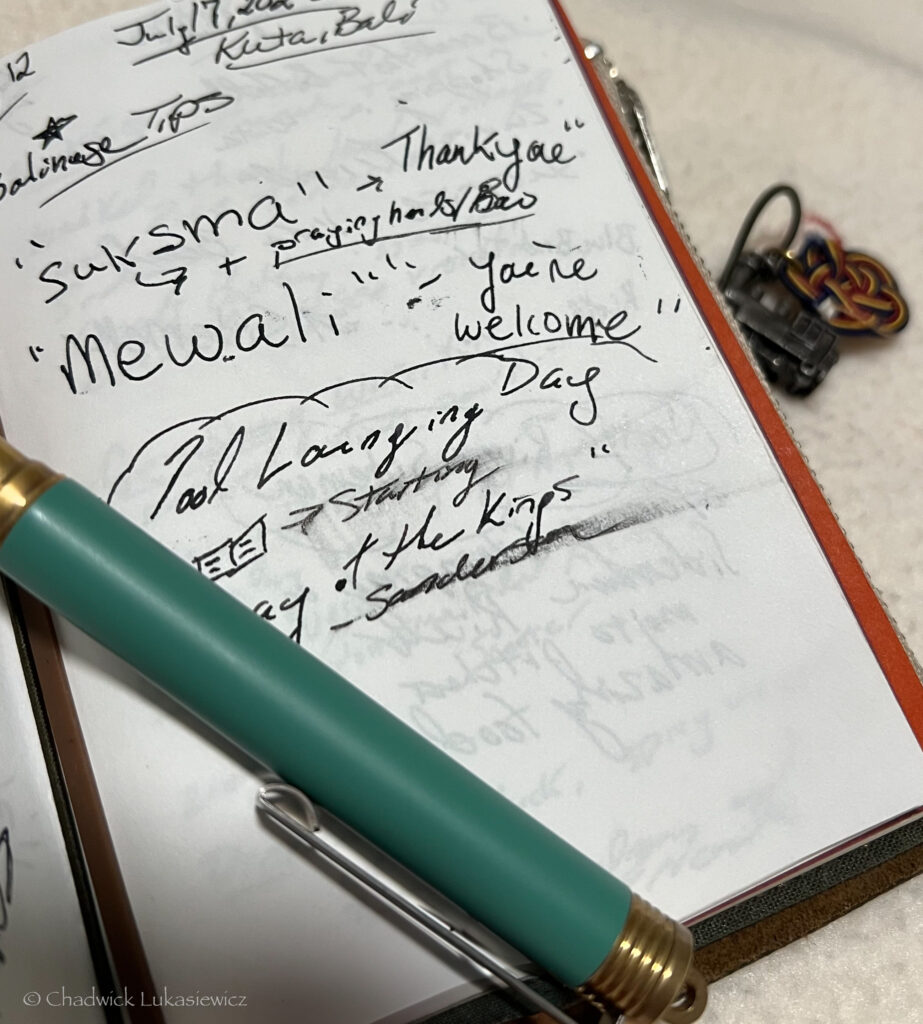 July 17, 202
Kuta, Bali
12
Balinese TIPS
"Suksma" → Thankyou"
↳ + praying hands/Bow
"Mewali" - you're
welcome"
Pool Lounging Day
→ Starting
ay of the Kings"
- Sanderson
© Chadwick Lukasiewicz